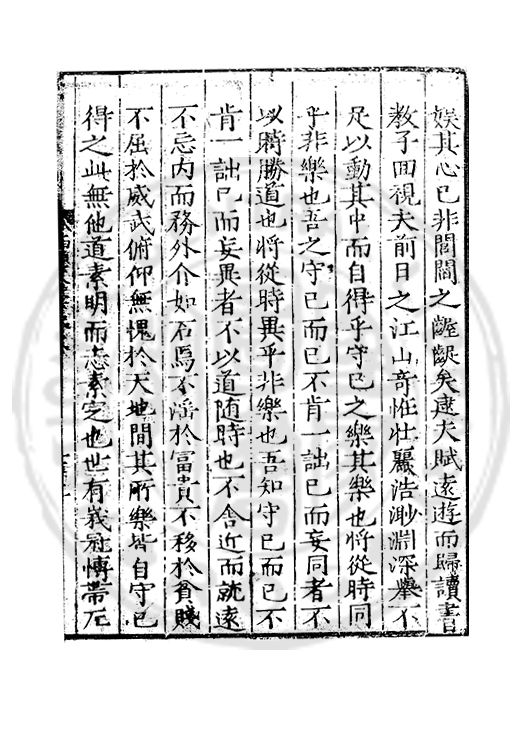 娯其心已非閭閻之齷齪矣逮夫賦遠遊而歸讀書
教子回視夫前日之江山竒恠壯麗浩渺淵深舉不
足以動其中而自得乎守己之樂其樂也將從時同
乎非樂也吾之守己而已不肯一詘己而妄同者不
以時勝道也將從時異乎非樂也吾知守己而已不
肯一詘己而妄異者不以道随時也不舎近而就遠
不忘内而務外介如石焉不滛於富貴不移於貧賤
不屈於威武俯仰無愧於天地間其所樂皆自守己
得之此無他道素明而志素定也世有峩冠慱帶